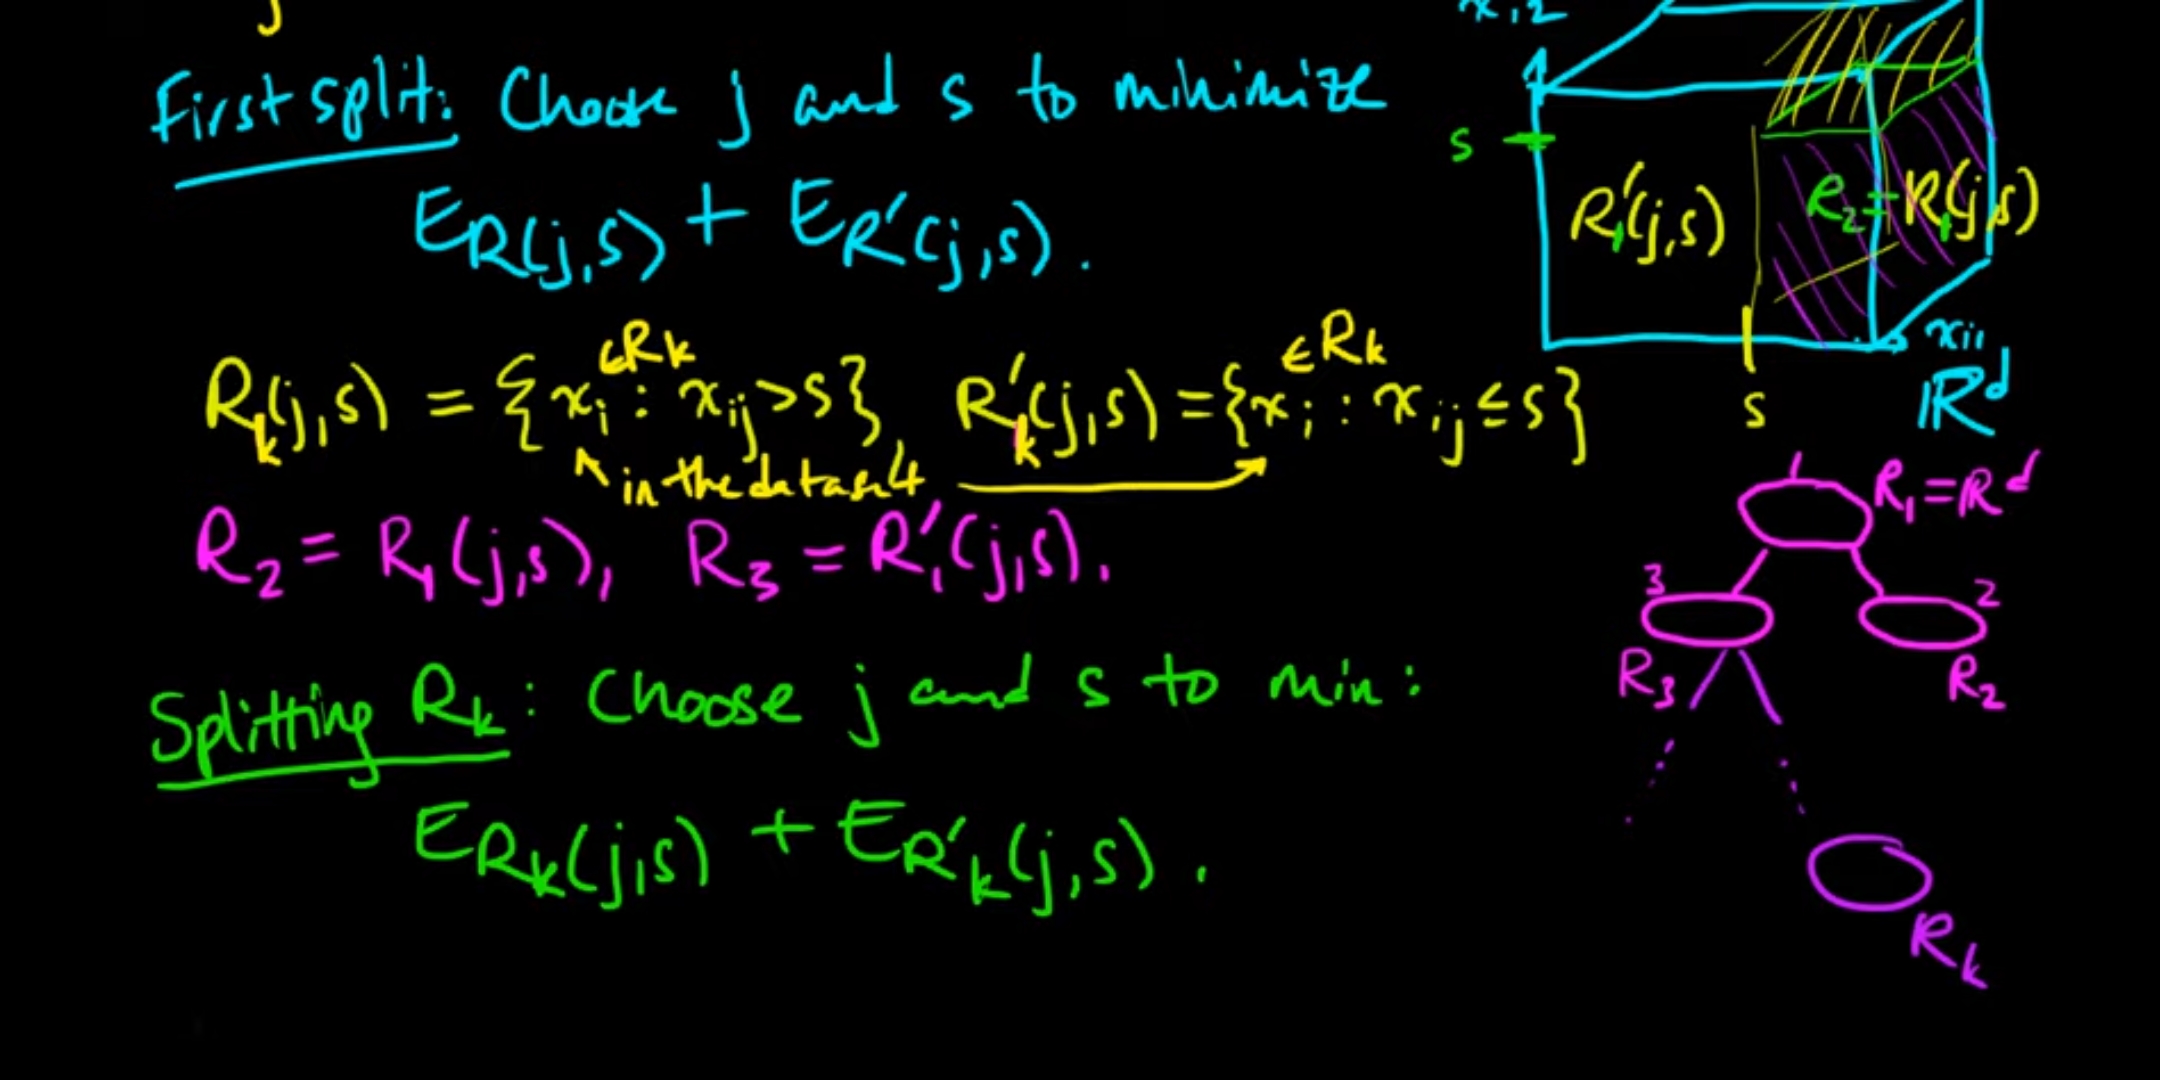 j
First split: Choose j and s to minimize
E_R(j,s) + E_R'(j,s).
∈R_k ∈R_k
R_k(j,s) = {x_i : x_ij > s}, R'_k(j,s) = {x_i : x_ij ≤ s}
in the dataset
R_2 = R_1(j,s), R_3 = R'_1(j,s).
Splitting R_k: Choose j and s to min:
E_R_k(j,s) + E_R'_k(j,s).
x_i2
s
R'_1(j,s) R_2 = R_1(j,s)
x_i1
s
ℝ^d
R_1 = ℝ^d
3 2
R_3 R_2
R_k